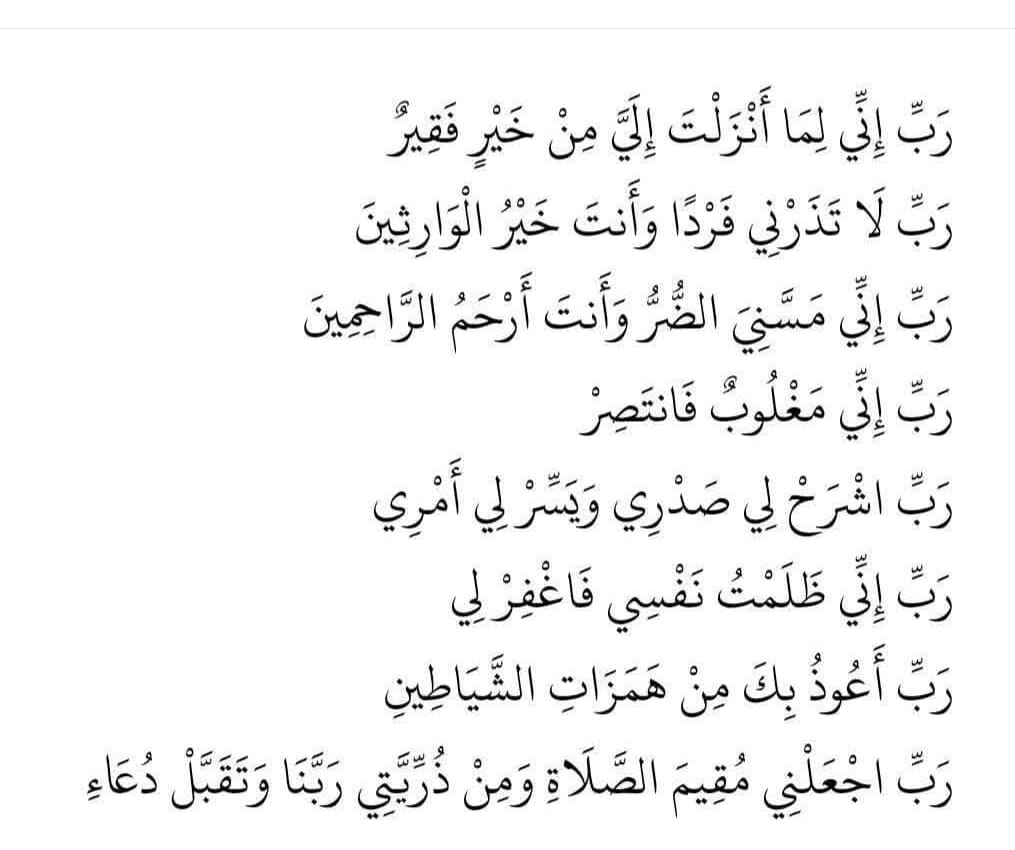 رَبِّ إِنِّي لِمَا أَنْزَلْتَ إِلَيَّ مِنْ خَيْرٍ فَقِيرٌ
رَبِّ لَا تَذَرْنِي فَرْدًا وَأَنتَ خَيْرُ الْوَارِثِينَ
رَبِّ إِنِّي مَسَّنِيَ الضُّرُّ وَأَنتَ أَرْحَمُ الرَّاحِمِينَ
رَبِّ إِنِّي مَغْلُوبٌ فَانتَصِرْ
رَبِّ اشْرَحْ لِي صَدْرِي وَيَسِّرْ لِي أَمْرِي
رَبِّ إِنِّي ظَلَمْتُ نَفْسِي فَاغْفِرْ لِي
رَبِّ أَعُوذُ بِكَ مِنْ هَمَزَاتِ الشَّيَاطِينِ
رَبِّ اجْعَلْنِي مُقِيمَ الصَّلَاةِ وَمِنْ ذُرِّيَّتِي رَبَّنَا وَتَقَبَّلْ دُعَاءِ